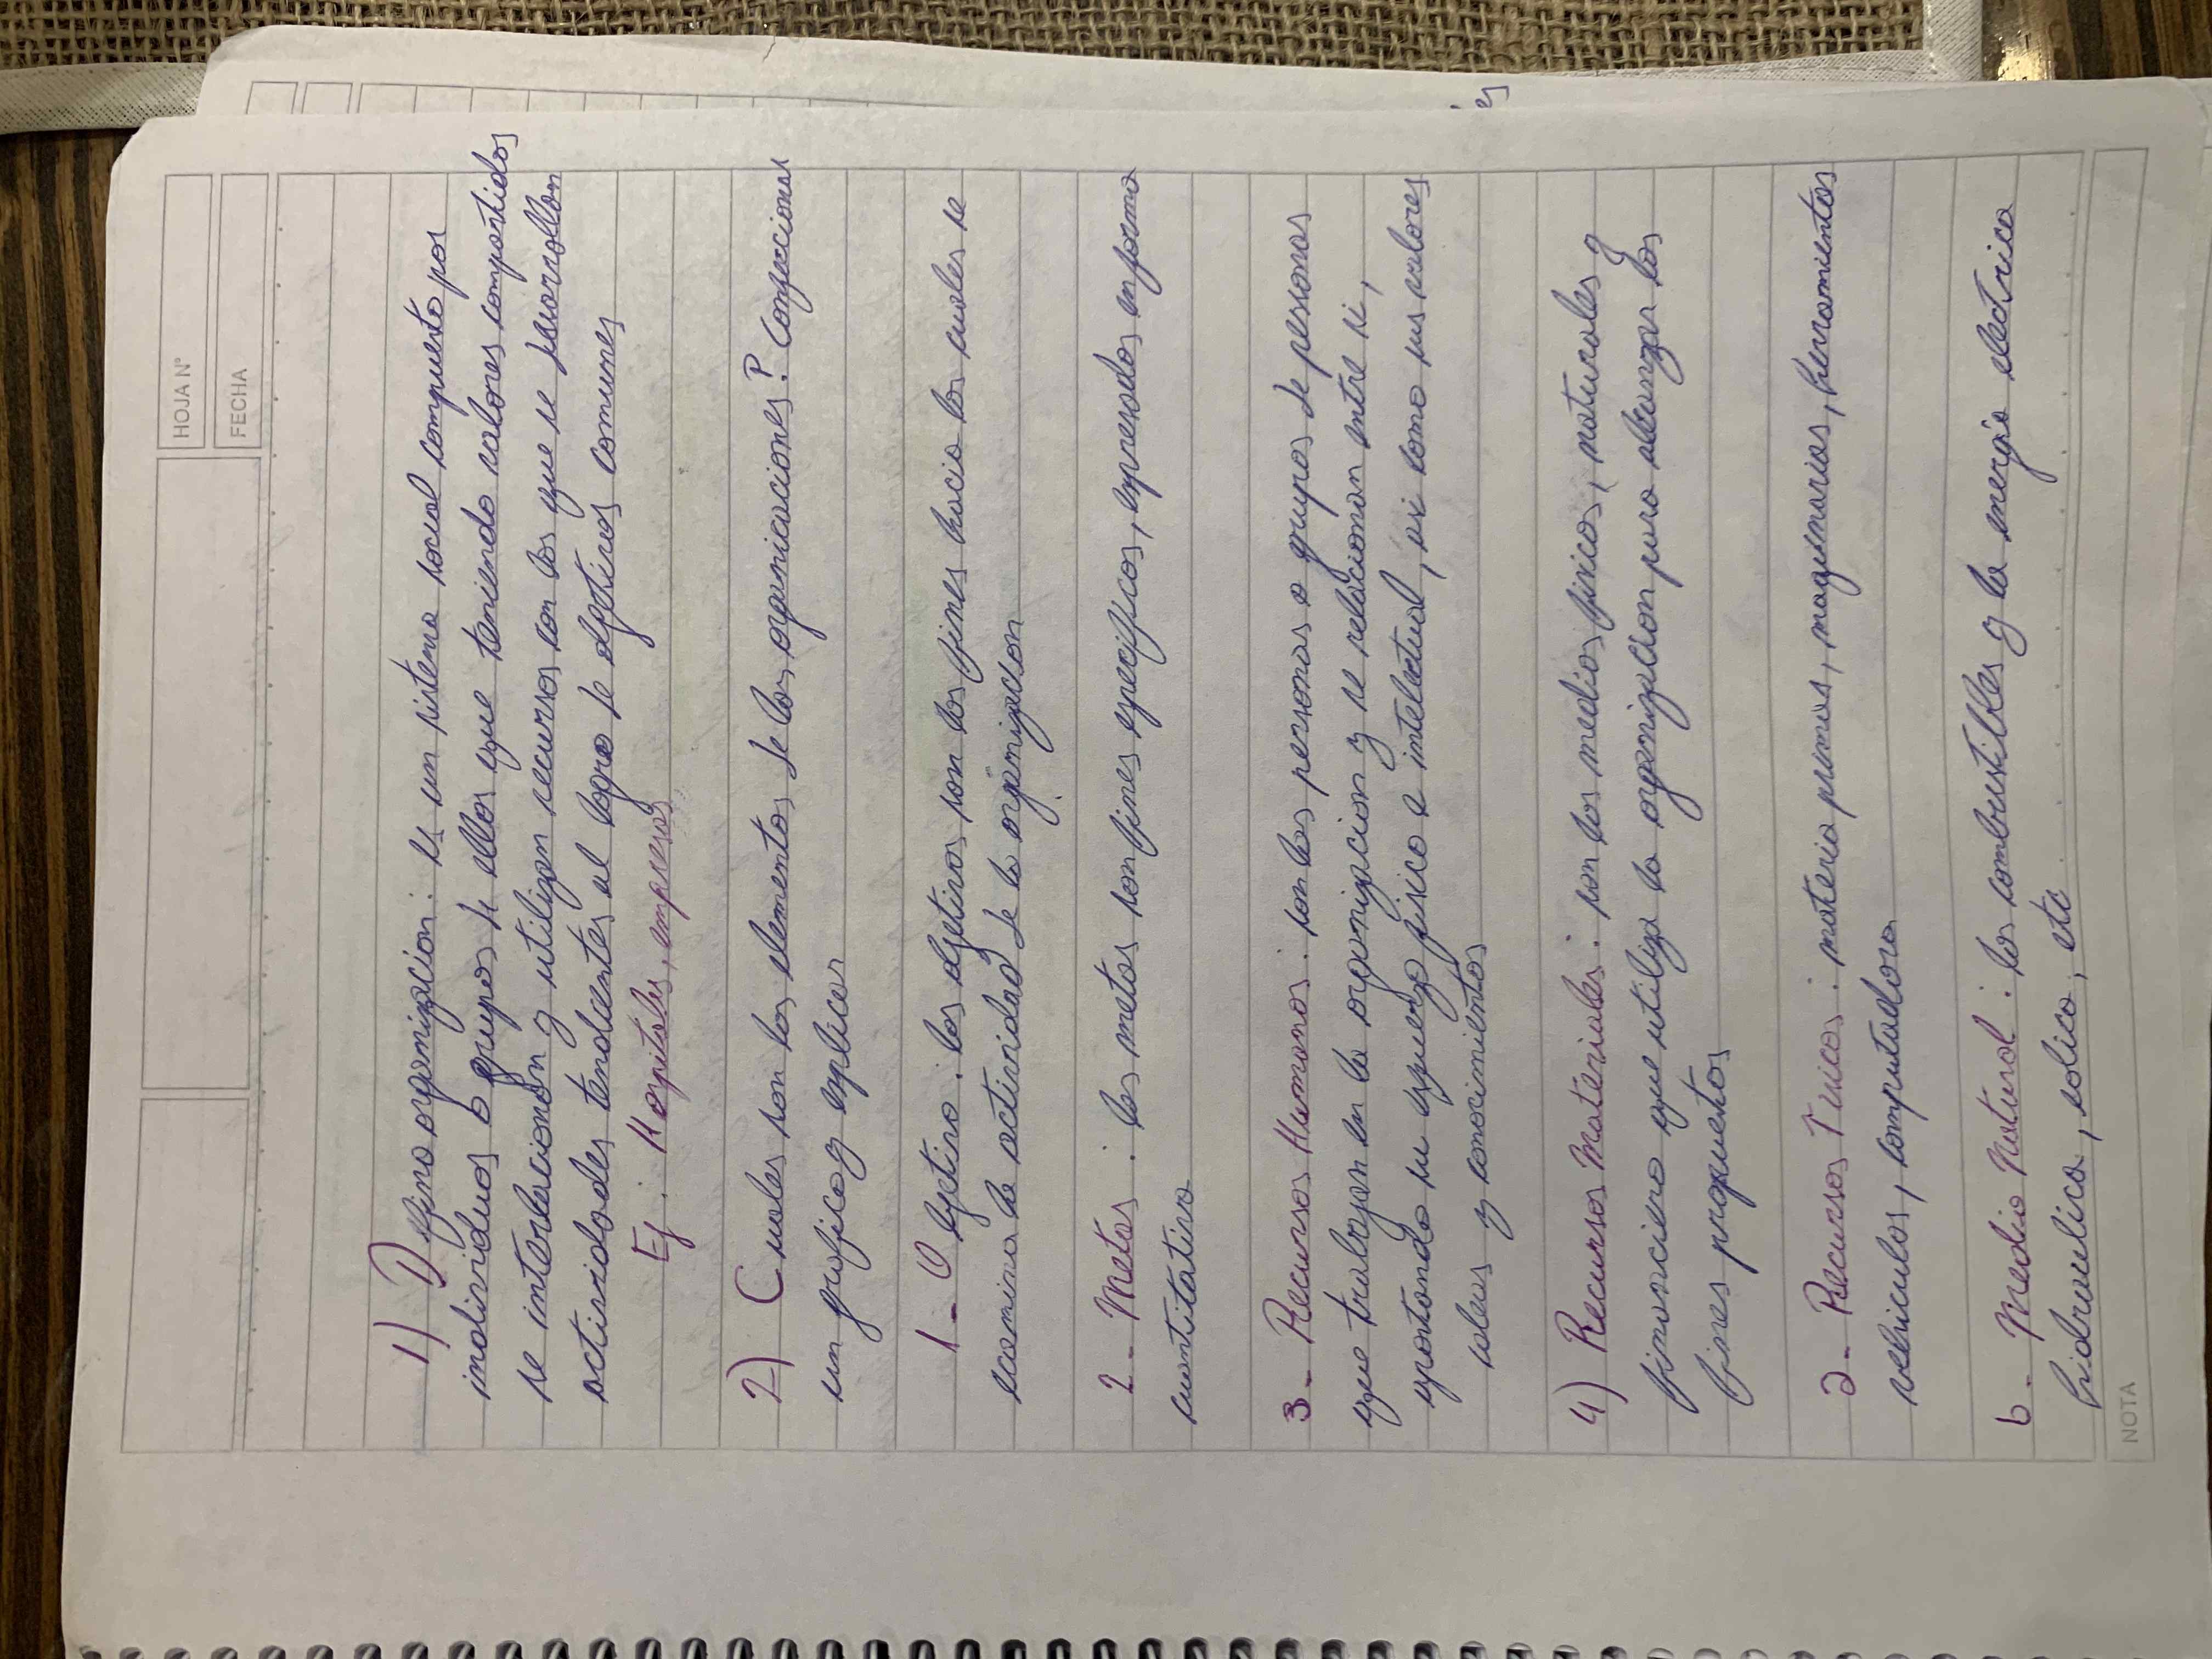 HOJA Nº
FECHA
1) Defina organizacion: es un sistema social compuesto por
individuos o grupos de ellos que teniendo valores compartidos
se interlacionan y utilizan recursos con los que se desarrollan
actividades tendientes al logro de objetivos comunes
Ej: Hospitales, empresas
2) Cuales son los elementos de las organicaciones? Confeccionar
un grafico y explicar
1- Objetivo: los objetivos son los fines hacia los cuales se
ecamina la actividad de la organizacion
2- Metas: las metas son fines especificos, expresados en forma
cuantitativa
3- Recursos Humanos: son las personas o grupos de personas
que trabajan en la organizacion y se relacionan entre si,
aportando su esfuerzo fisico e intelectual, asi como sus valores
ideas y conocimientos
4) Recursos Materiales: son los medios fisicos, naturales y
financiero que utiliza la organizacion para alcanzar los
fines propuestos
a- Recursos Tnicos: materia primas, maquinarias, herramientas
vehiculos, computadora
b- Medio Natural: los combustibles y la energia electrica
hidraulica, eolica, etc
NOTA
es